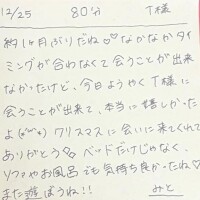 12/25 80分 T様
約1ヶ月ぶりだね♡♡なかなかタイ
ミングが合わなくて会うことが出来
なかったけど、今日ようやくT様に
会うことが出来て、本当に嬉しかった
よ(*^^*) クリスマスに会いに来てくれて
ありがとう♡。ベッドだけじゃなく、
ソファやお風呂でも気持ち良かったね♡
また遊ぼうね!!
みと